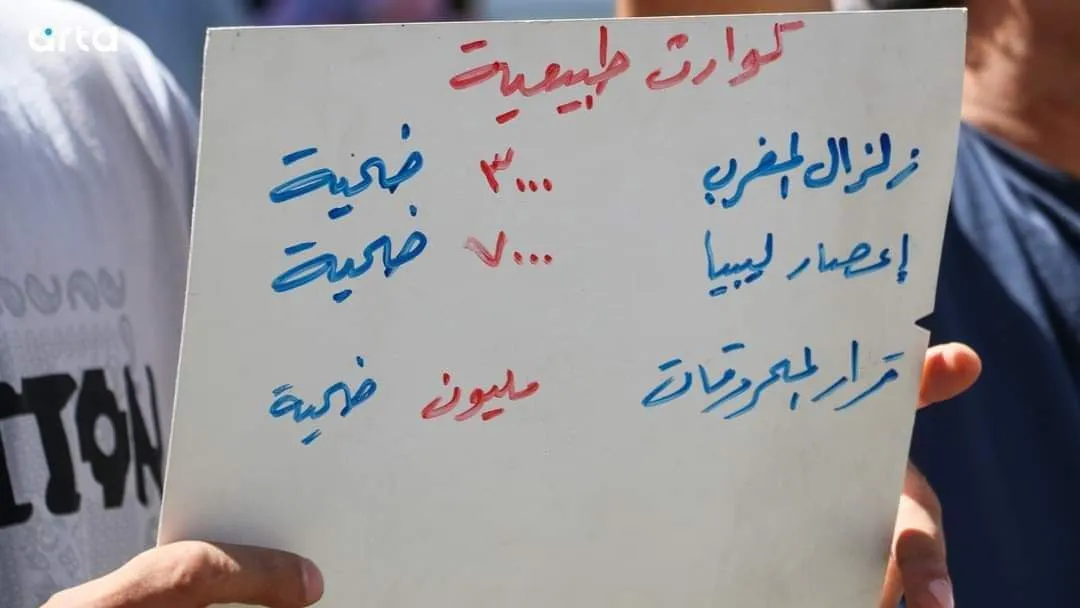 arta
كوارث طبيعية
زلزال المغرب ٣٠٠٠ ضحية
إعصار ليبيا ٧٠٠٠ ضحية
قرار المحروقات مليون ضحية